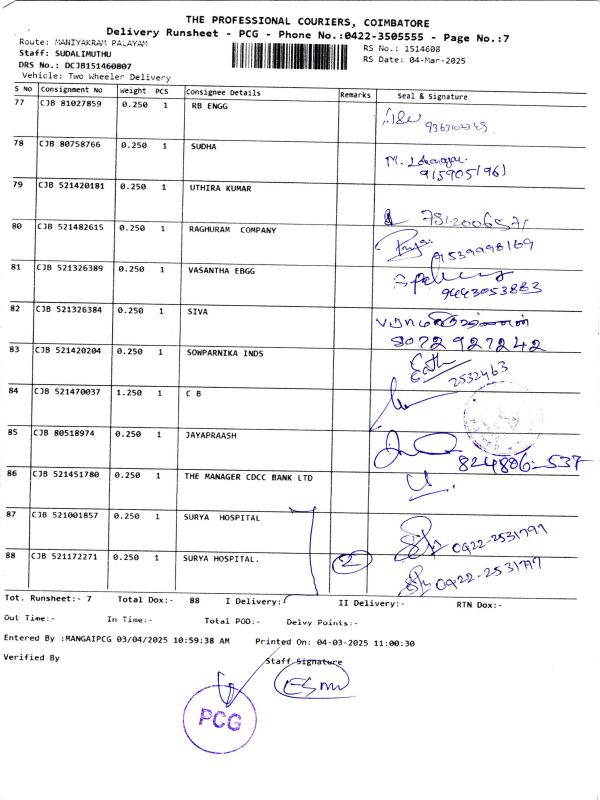 THE PROFESSIONAL COURIERS, COIMBATORE
Delivery Runsheet - PCG - Phone No.:0422-3505555 - Page No.:7
Route: MANIYAKRAM PALAYAM
RS No.: 1514608
Staff: SUDALIMUTHU
RS Date: 04-Mar-2025
DRS No.: DCJB151460807
Vehicle: Two Wheeler Delivery
S No Consignment No Weight PCS Consignee Details Remarks Seal & Signature
77 CJB 81027859 0.250 1 RB ENGG
78 CJB 80758766 0.250 1 SUDHA
9159051961
79 CJB 521420181 0.250 1 UTHIRA KUMAR
80 CJB 521482615 0.250 1 RAGHURAM COMPANY
9539998169
81 CJB 521326389 0.250 1 VASANTHA EBGG
9443053883
82 CJB 521326384 0.250 1 SIVA
8072927242
83 CJB 521420204 0.250 1 SOWPARNIKA INDS
2532463
84 CJB 521470037 1.250 1 C B
85 CJB 80518974 0.250 1 JAYAPRAASH
824806-537
86 CJB 521451780 0.250 1 THE MANAGER CDCC BANK LTD
87 CJB 521001857 0.250 1 SURYA HOSPITAL
0422-2531797
88 CJB 521172271 0.250 1 SURYA HOSPITAL. 2
Tot. Runsheet:- 7 Total Dox:- 88 I Delivery:- II Delivery:- RTN Dox:-
Out Time:- In Time:- Total POD:- Delvy Points:-
Entered By :MANGAIPCG 03/04/2025 10:59:38 AM Printed On: 04-03-2025 11:00:30
Verified By Staff Signature
PCG